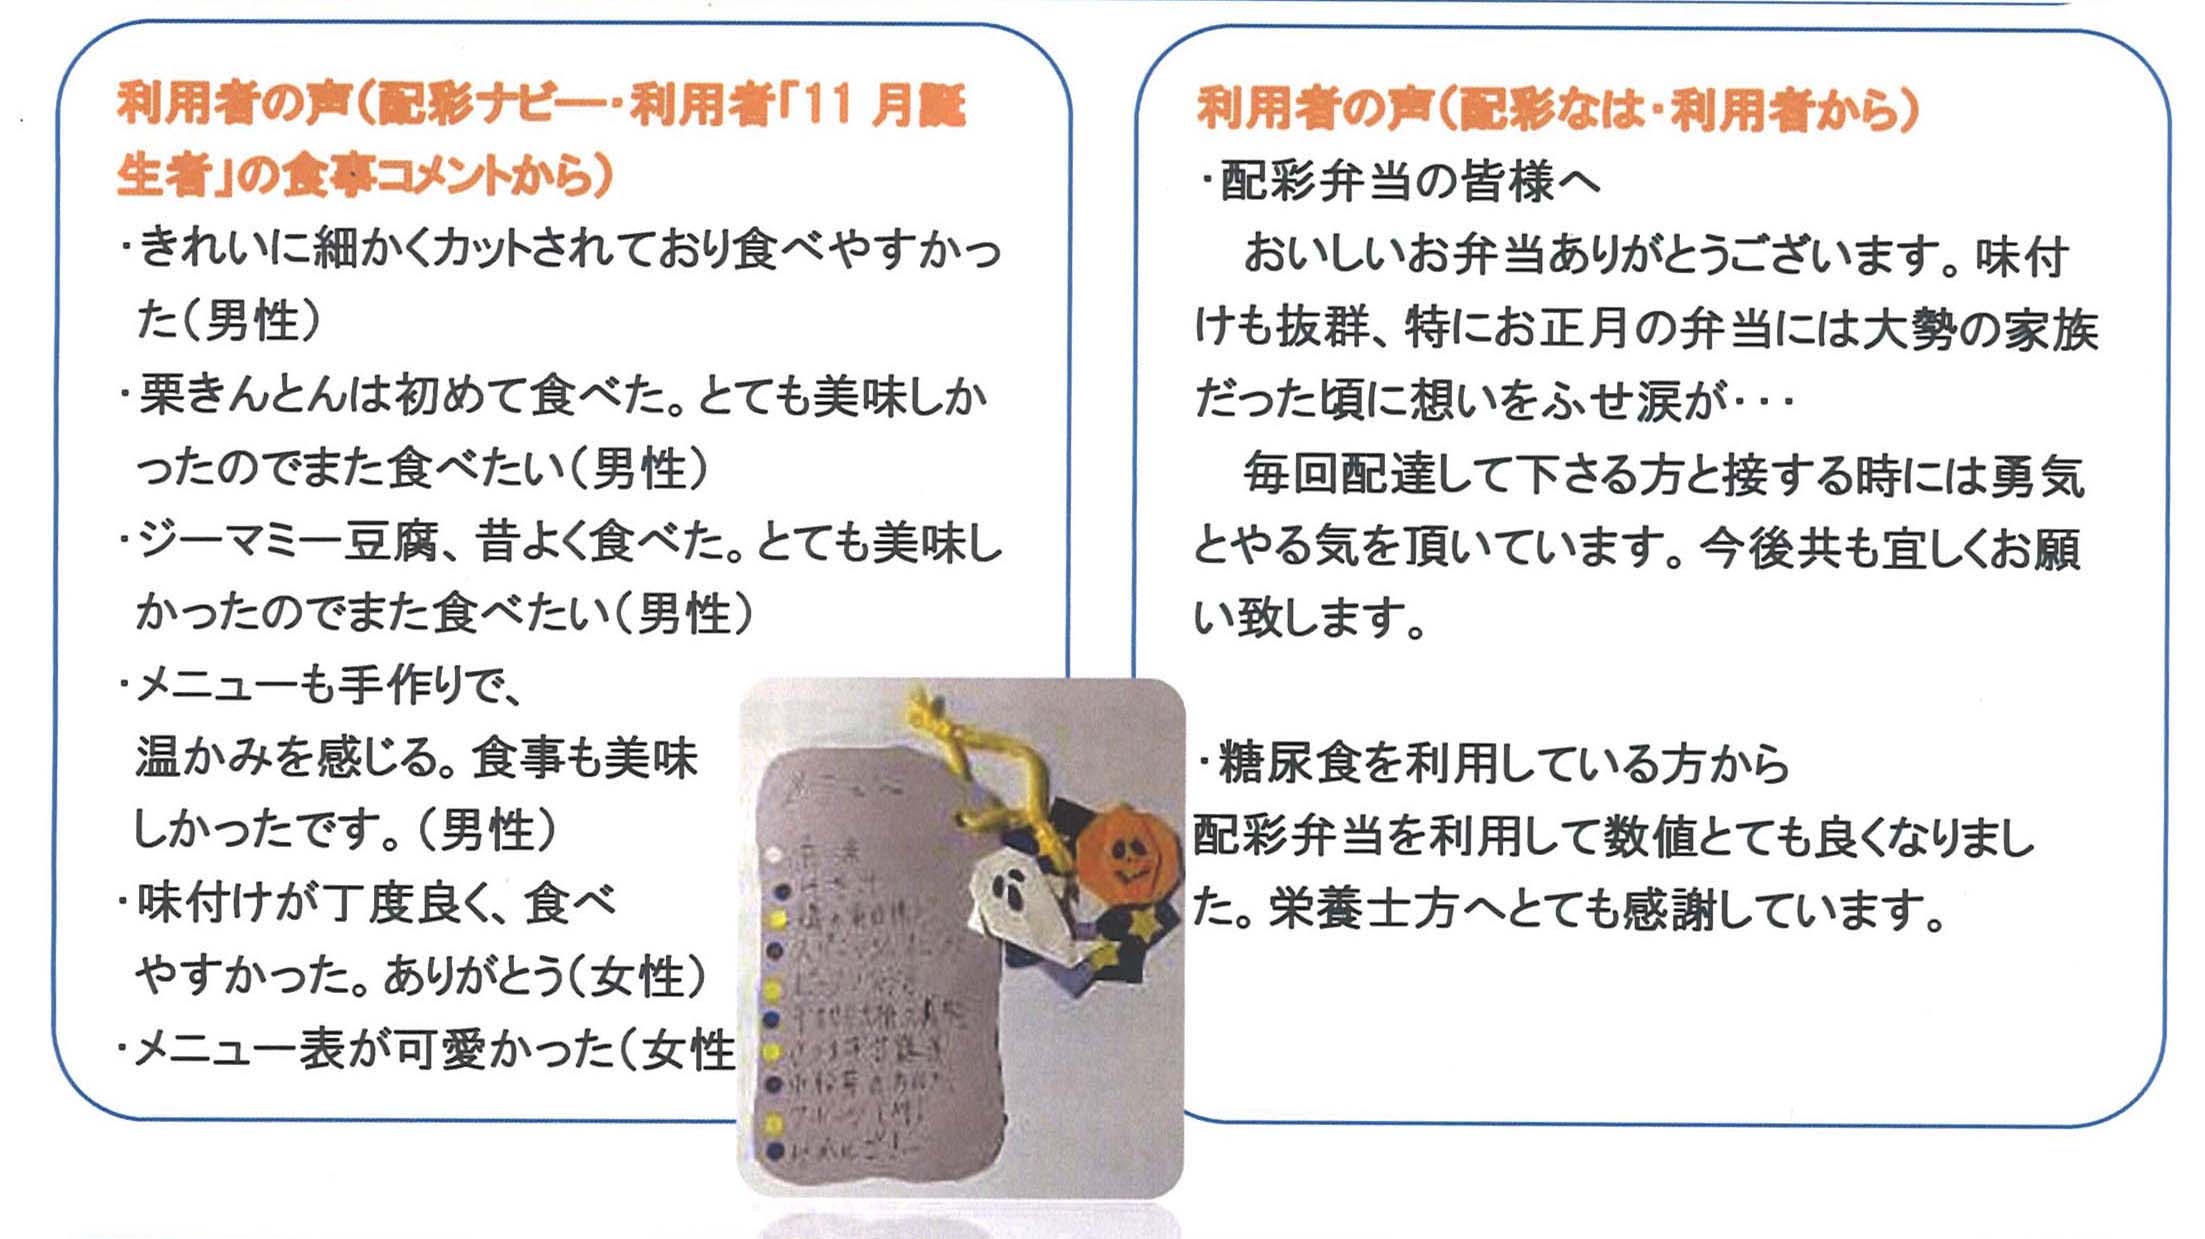 利用者の声(配彩ナビー・利用者「11月誕
生者」の食事コメントから)
・きれいに細かくカットされており食べやすかっ
た(男性)
・栗きんとんは初めて食べた。とても美味しか
ったのでまた食べたい(男性)
・ジーマミー豆腐、昔よく食べた。とても美味し
かったのでまた食べたい(男性)
・メニューも手作りで、
温かみを感じる。食事も美味
しかったです。(男性)
・味付けが丁度良く、食べ
やすかった。ありがとう(女性)
・メニュー表が可愛かった(女性
利用者の声(配彩なは・利用者から)
・配彩弁当の皆様へ
おいしいお弁当ありがとうございます。味付
けも抜群、特にお正月の弁当には大勢の家族
だった頃に想いをふせ涙が・・・
毎回配達して下さる方と接する時には勇気
とやる気を頂いています。今後共も宜しくお願
い致します。
・糖尿食を利用している方から
配彩弁当を利用して数値とても良くなりまし
た。栄養士方へとても感謝しています。